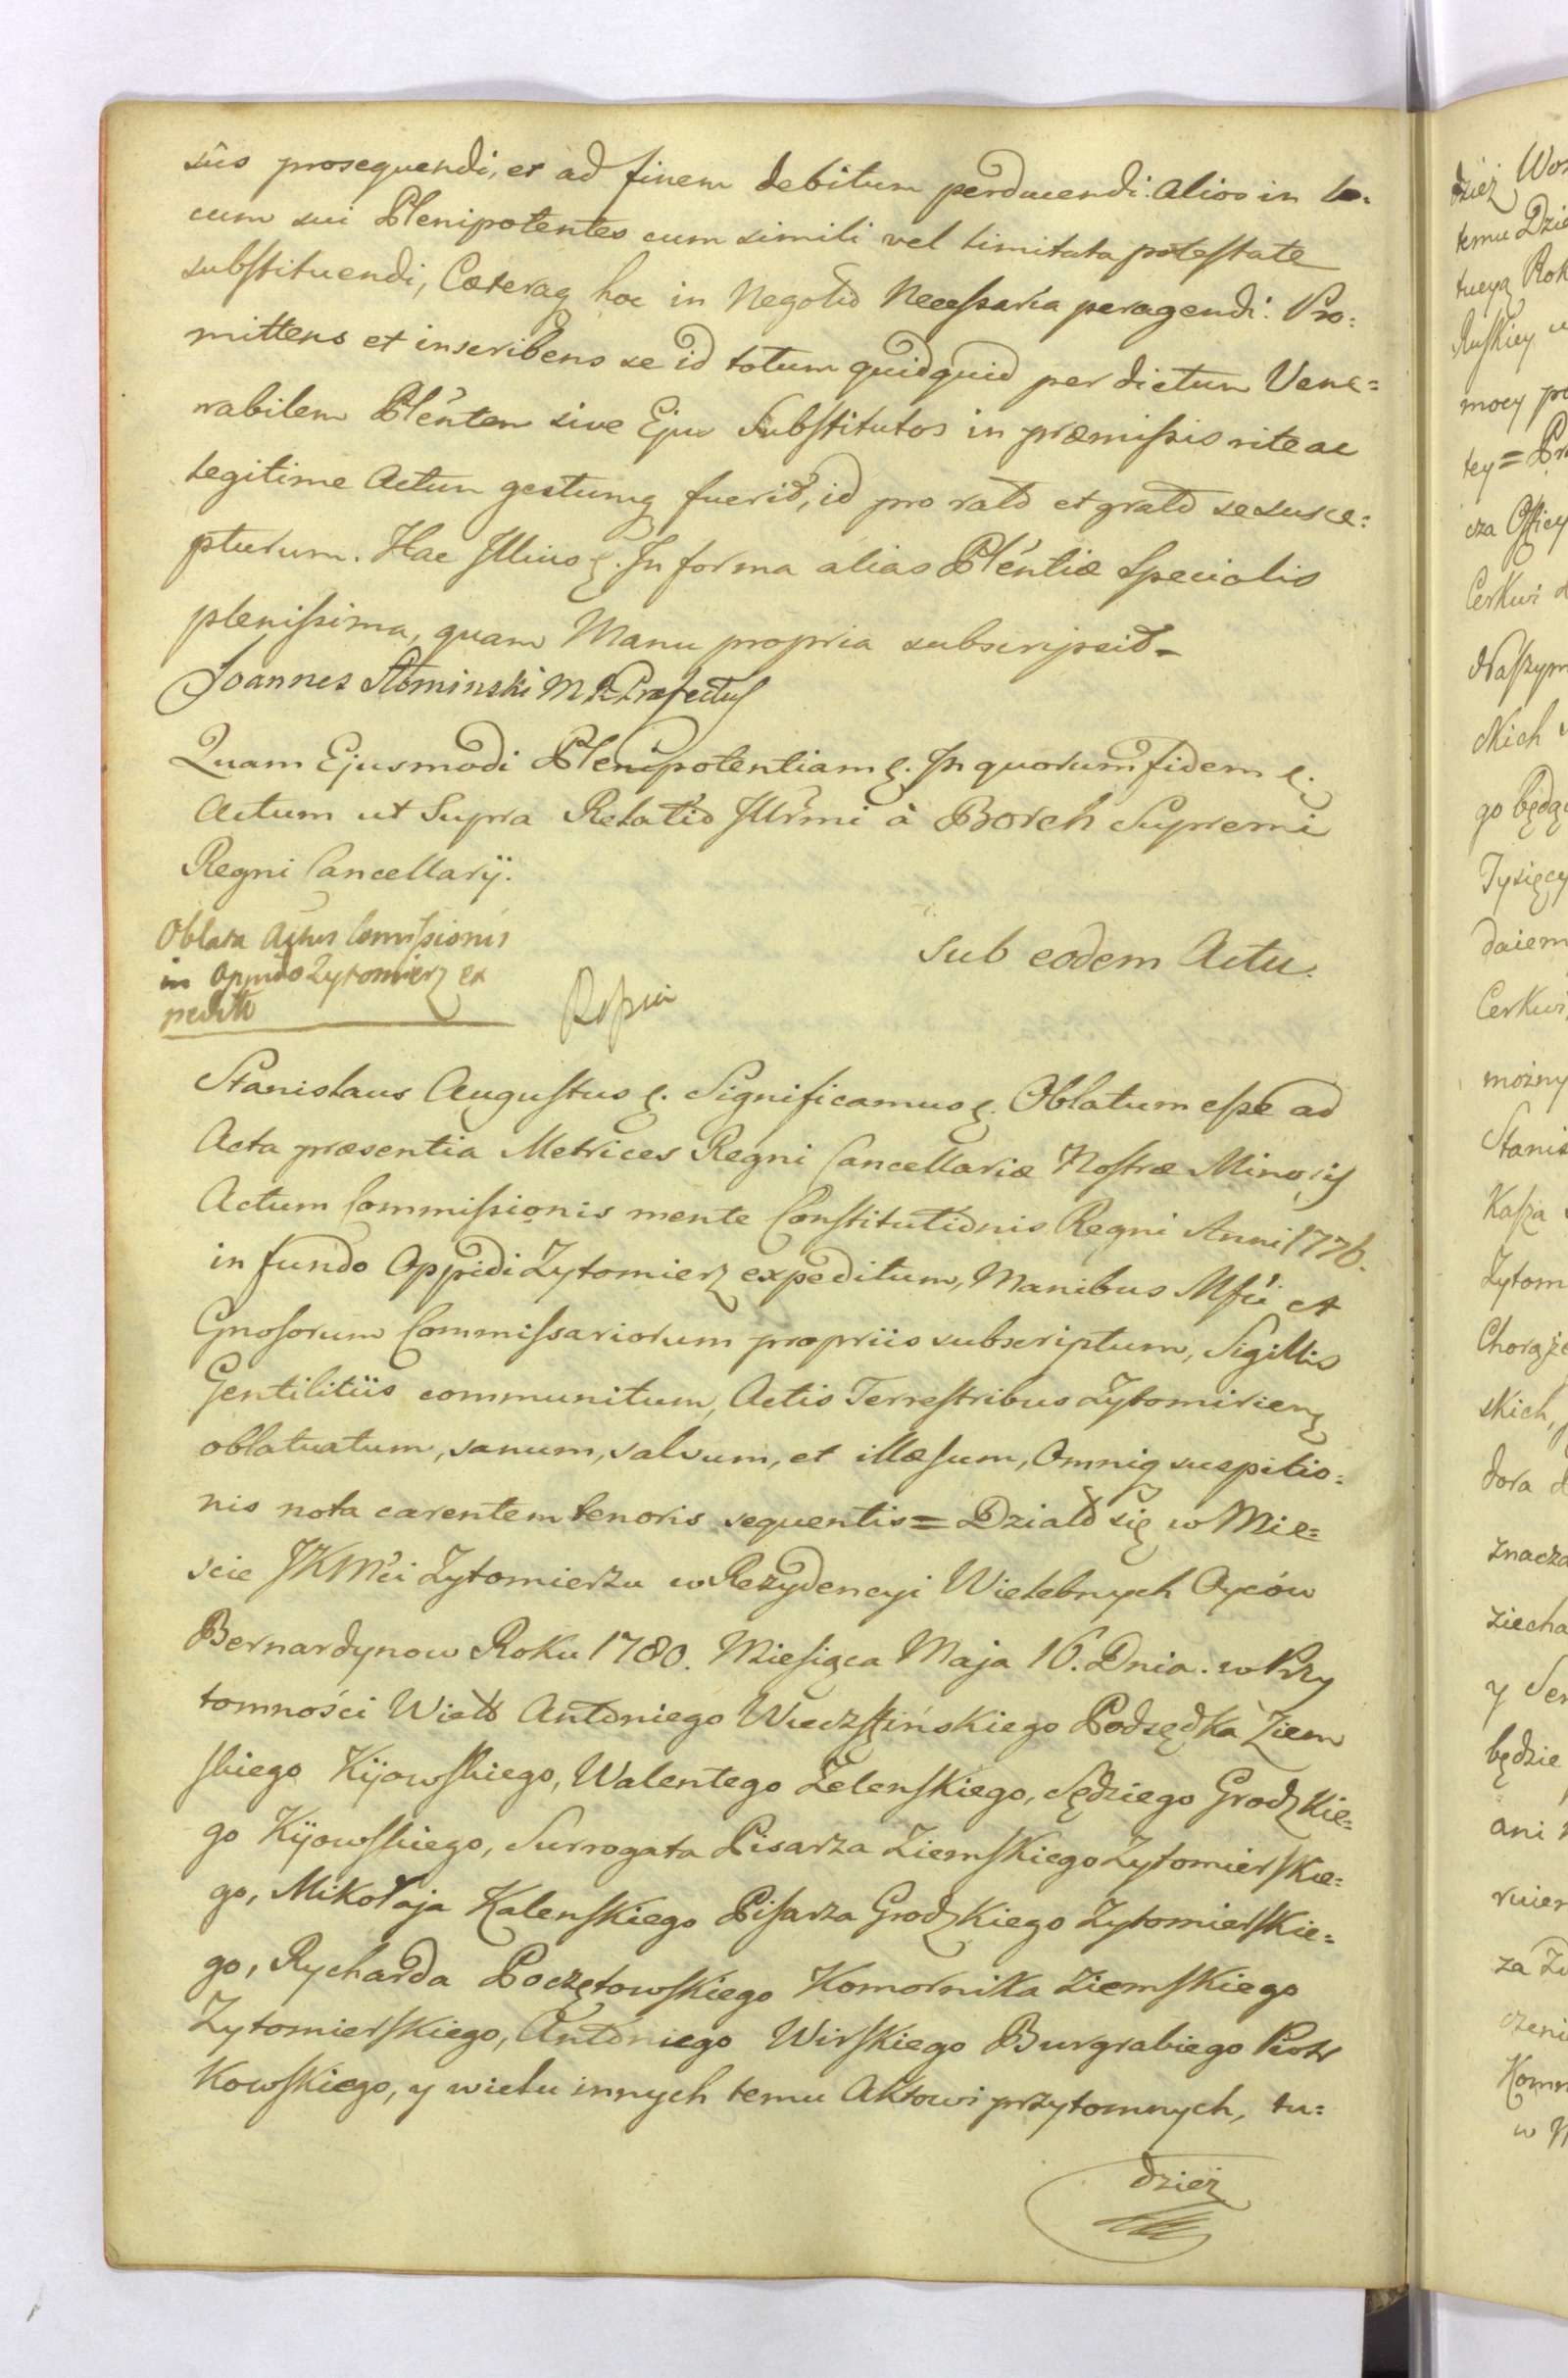 suo prosequendi, et ad finem debitum perducendi. Alios in lo:
cum sui Plenipotentes cum simili vel limitata potestate
substituendi, Cæteraq hoc in Negotio Necessaria peragendi: Pro:
mittens et inscribens se id totum quidquid per dictum Vene=
rabilem Pleñten sive Ejus Substitutos in præmissis rite ac
legitime Actum gestumq fuerit, id pro rato et grato se susce:
pturum. Hac Illius ę. In forma alias Pleńtiæ Specialis
plenissima, quam Manu propria subscripsit =
Joannes Słominski Præfectus
Quam Ejusmodi Plenipotentiam ę. In quorum fidem ę.
Actum ut Supra Relatio Illrmi à Borch Supremi
Regni Cancellarij.
Oblata Actus Comissionis
in Oppido Zytomierz ex
pediti
sub eodem Actu.
Stanislaus Augustus ę. Significamus ę. Oblatum esse ad
Acta præsentia Metrices Regni Cancellariæ Nostræ Minoris
Actum Commissionis mente Constitutionis Regni Anni 1776.
in fundo Oppidi Zytomierz expeditum, Manibus Mfci et
Gnosorum Commissariorum propriis subscriptum, Sigillis
Gentilitiis communitum, Actis Terrestribus Zytomirien
oblatuatum, sanum, salvum, et illæsum, Omniq suspitio:
nis nota carentem tenoris sequentis = Działo się w Mie=
scie JKMci Zytomierzu w Rezydencyi Wielebnych Oyców
Bernardynow Roku 1780. Miesiąca Maja 16. Dnia. w Przy
tomności Antoniego Podsędka Ziem
skiego Kijowskiego, Walentego Zelenskiego, Sędziego Grodzkie=
go Kijowskiego, Surrogata Pisarza Ziemskiego Zytomierskie=
go, Mikołaja Kalenskiego Pisarza Grodzkiego Zytomierskie=
go, Rycharda Poczętowskiego Komornika Ziemskiego
Zytomierskiego, Antoniego Wirskiego Burgrabiego Piotr
kowskiego, y wielu innych temu Aktowi przytomnych, tu=
dzież
dzież
temu
Rok
Ruskiey
mocy
tey =
cza
Cerkwi
Naszym
go będą
Tysięcy
daiem
Cerkwi
możny
Stanis
Kasza
Zytom
Chorąże
skich,
dora
znacza
ziecha
y
będzie
ani
za
czeni
w